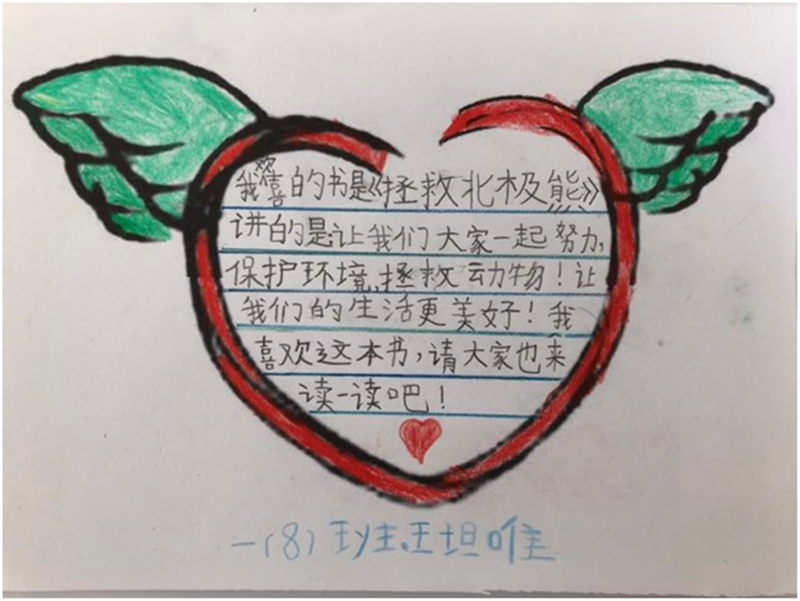 我喜欢的书是《拯救北极熊》
讲的是:让我们大家一起努力,
保护环境,拯救动物!让
我们的生活更美好!我
喜欢这本书,请大家也来
读一读吧!
一(8)班王坦唯